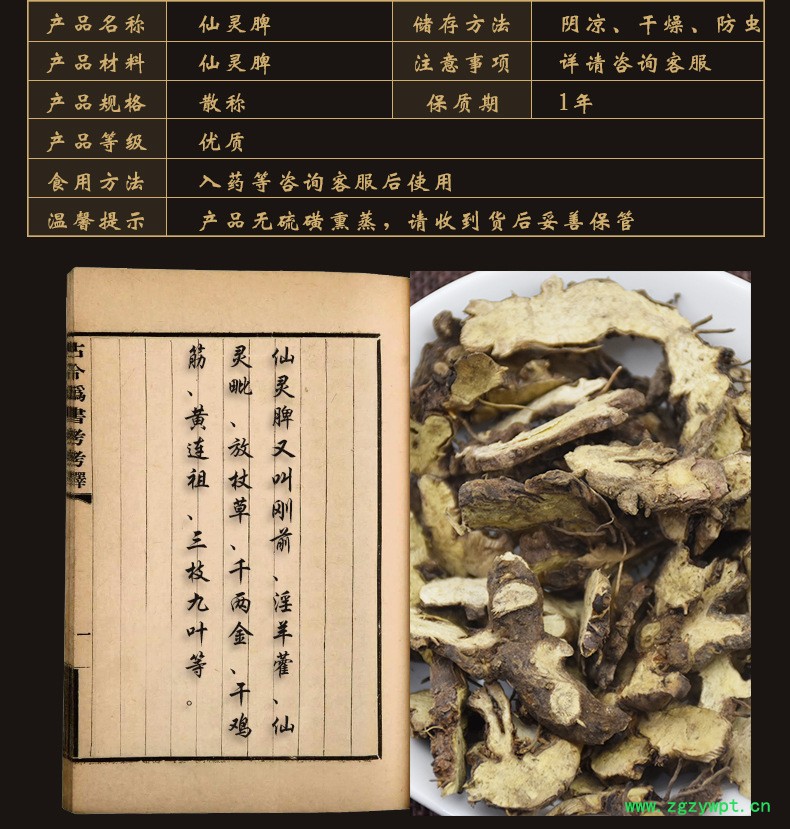 产品名称 仙灵脾 储存方法 阴凉、干燥、防虫
产品材料 仙灵脾 注意事项 详请咨询客服
产品规格 散称 保质期 1年
产品等级 优质
食用方法 入药等咨询客服后使用
温馨提示 产品无硫磺熏蒸，请收到货后妥善保管
仙灵脾又叫刚前、淫羊藿、仙
灵毗、放杖草、千两金、干鸡
筋、黄连祖、三枝九叶等。
古今伪書考考釋
一
www.zgzywpt.cn